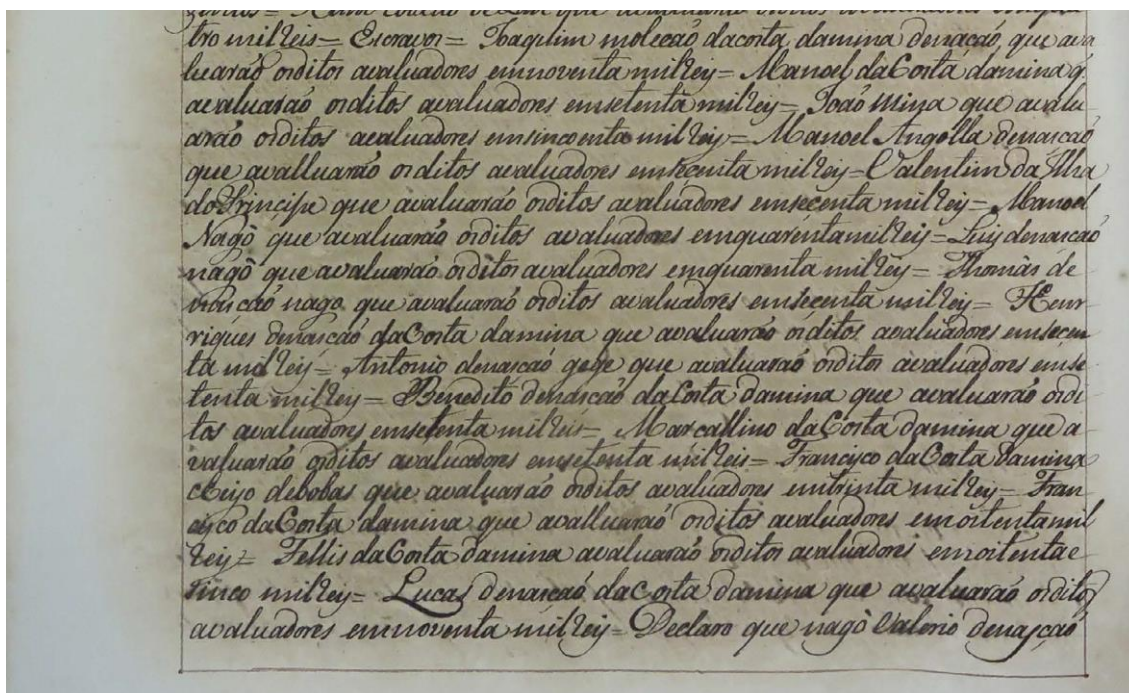 tro mil reis = Escravos = Joaquim molecaõ dacosta damina denacaõ, que ava
luaraõ os ditos avaluadores emnoventa mil reiy = Manoel da Costa damina q.
avaluaraõ os ditos avaluadores emsetenta mil reiy = Joaõ Mina que avalu
araõ os ditos avaluadores emsincoenta mil reiy = Manoel Angolla denascaõ
que avalluaraõ os ditos avaluadores emsecenta mil reiy = Valentim da Ilha
do Principe que avaluaraõ os ditos avaluadores emsecenta mil reiy = Manoel
Nagò que avaluaraõ os ditos avaluadores emquarenta mil reiy = Luiy denascaõ
nagò que avaluaraõ os ditos avaluadores emquarenta mil reiy = Thomàs de
nascaõ nago que avaluaraõ os ditos avaluadores emsecenta mil reiy = Henr
riques denascaõ da Costa damina que avaluaraõ os ditos avaluadores emsecen
ta mil reiy = Antonio denascaõ gege que avaluaraõ os ditos avaluadores emse
tenta mil reiy = Benedito denascaõ da Costa damina que avaluaraõ os di
tos avaluadores emsetenta mil reis = Marcallino da Costa damina que a
valuaraõ os ditos avaluadores emsetenta mil reis = Francisco da Costa damina
cheyo debobas que avaluaraõ os ditos avaluadores emtrinta mil reiy = Fran
cisco da Costa damina que avalluaraõ os ditos avaluadores emoitenta mil
reiy = Fellis da Costa damina avaluaraõ os ditos avaluadores emoitenta e
sinco mil reiy = Lucas denascaõ da Costa damina que avaluaraõ os ditos
avaluadores emnoventa mil reiy = Declaro que nagò Valerio denascaõ